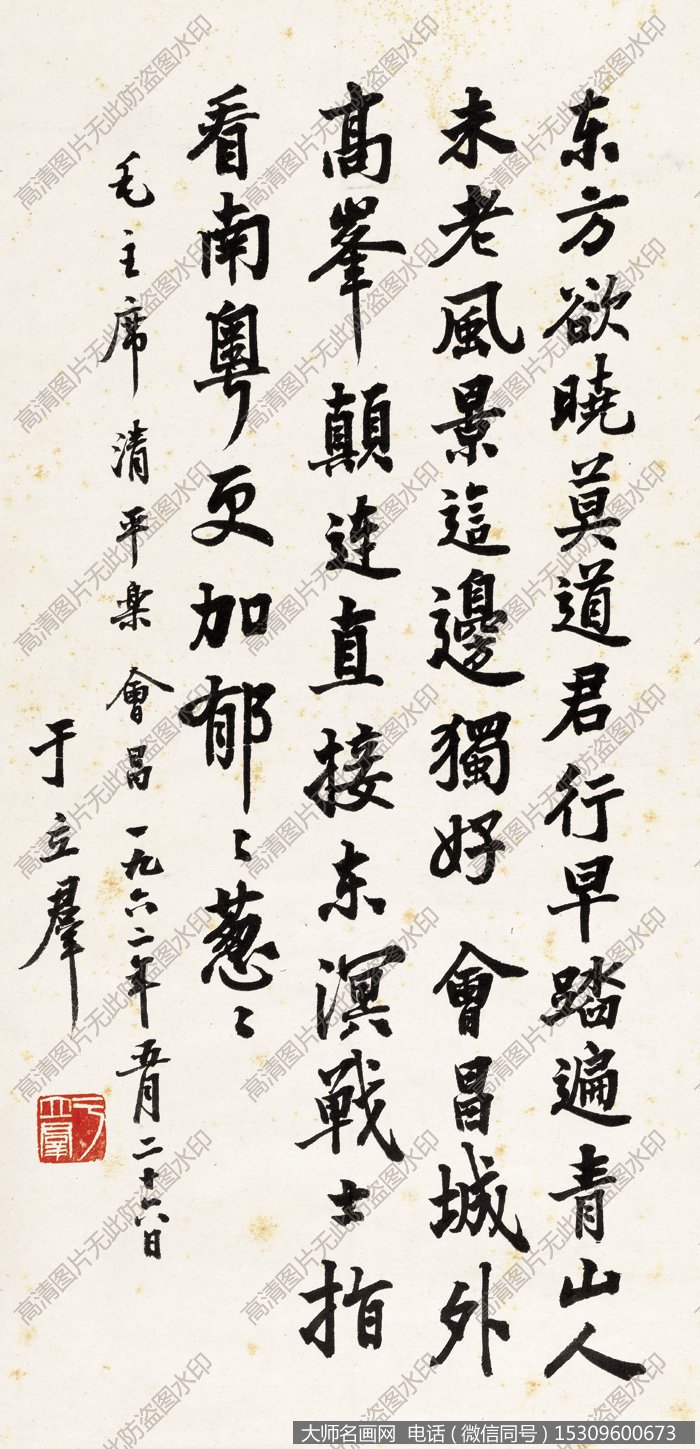 东方欲曉莫道君行早踏遍青山人
未老風景這邊獨好 會昌城外
高峯顛連直接东溟戰士指
看南粵更加郁〻葱〻
毛主席清平楽 會昌 一九六二年五月二十六日
于立羣
于立羣
高清图片无此防盗图水印
大师名画网 电话（微信同号）15309600673